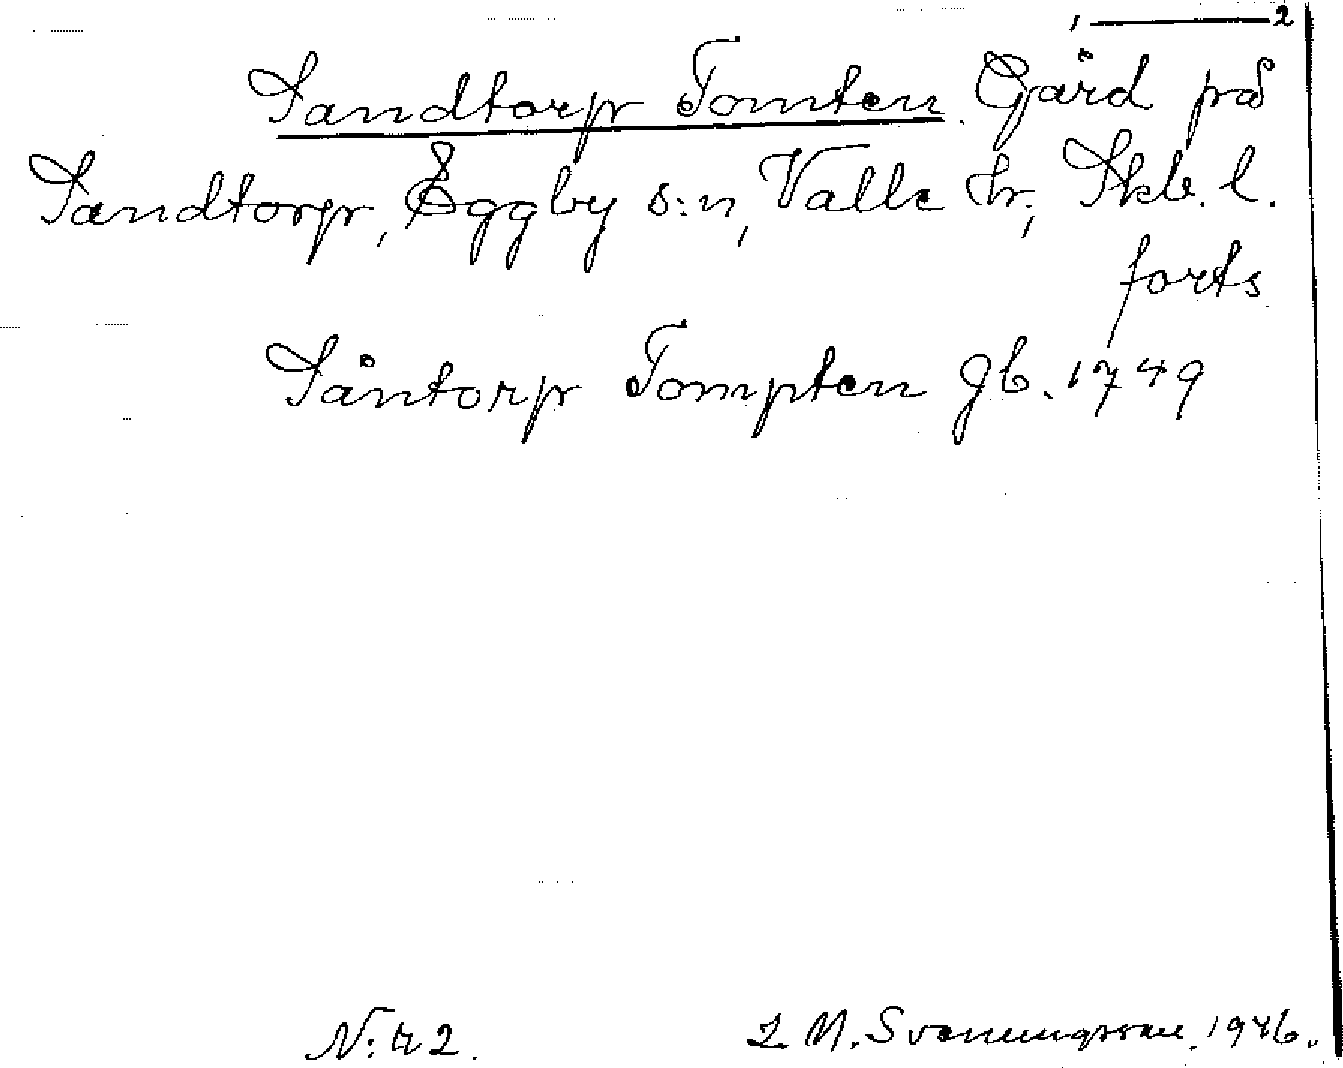 1 — 2
Sandtorp Tomten. Gård på
Sandtorp, Eggby s:n, Valle hr, Skb. l.
forts
Såntorp Tompten Jb. 1749
N:r 2. L M. Svenungsson. 1946.